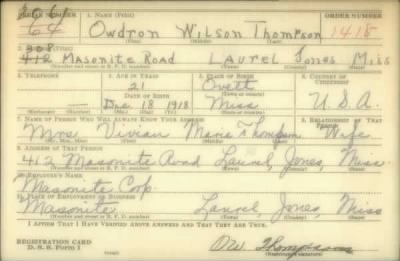 SERIAL NUMBER 1. NAME (Print) ORDER NUMBER
64 Owdron Wilson Thompson 1418
(First) (Middle) (Last)
308
412 Masonite Road Laurel Jones Miss
(Number and street or R. F. D. number) (Town) (County) (State)
3. TELEPHONE 4. AGE IN YEARS 5. PLACE OF BIRTH 6. COUNTRY OF CITIZENSHIP
21 Ovett
DATE OF BIRTH (Town or county)
Dec 18 1918 Miss U.S.A.
(Exchange) (Number) (Mo.) (Day) (Yr.) (State or country)
7. NAME OF PERSON WHO WILL ALWAYS KNOW YOUR ADDRESS 8. RELATIONSHIP OF THAT PERSON
Mrs Vivian Marie Thompson Wife
(Mr., Mrs., Miss) (First) (Middle) (Last)
9. ADDRESS OF THAT PERSON
412 Masonite Road Laurel, Jones, Miss
(Number and street or R. F. D. number) (Town) (County) (State)
10. EMPLOYER'S NAME
Masonite Corp
11. PLACE OF EMPLOYMENT OR BUSINESS
Masonite Laurel, Jones, Miss
(Number and street or R. F. D. number) (Town) (County) (State)
I AFFIRM THAT I HAVE VERIFIED ABOVE ANSWERS AND THAT THEY ARE TRUE.
REGISTRATION CARD
D. S. S. Form 1 OW Thompson
(Registrant's signature)